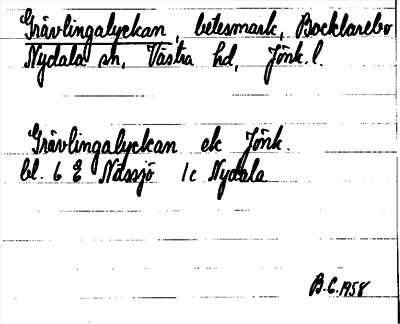 Grävlingalyckan, betesmark, Bocklarebo
Nydala sn, Västra hd, Jönk.l.
Grävlingalyckan ek Jönk.
bl. 6 E Nässjö 1c Nydala
B.C. 1958